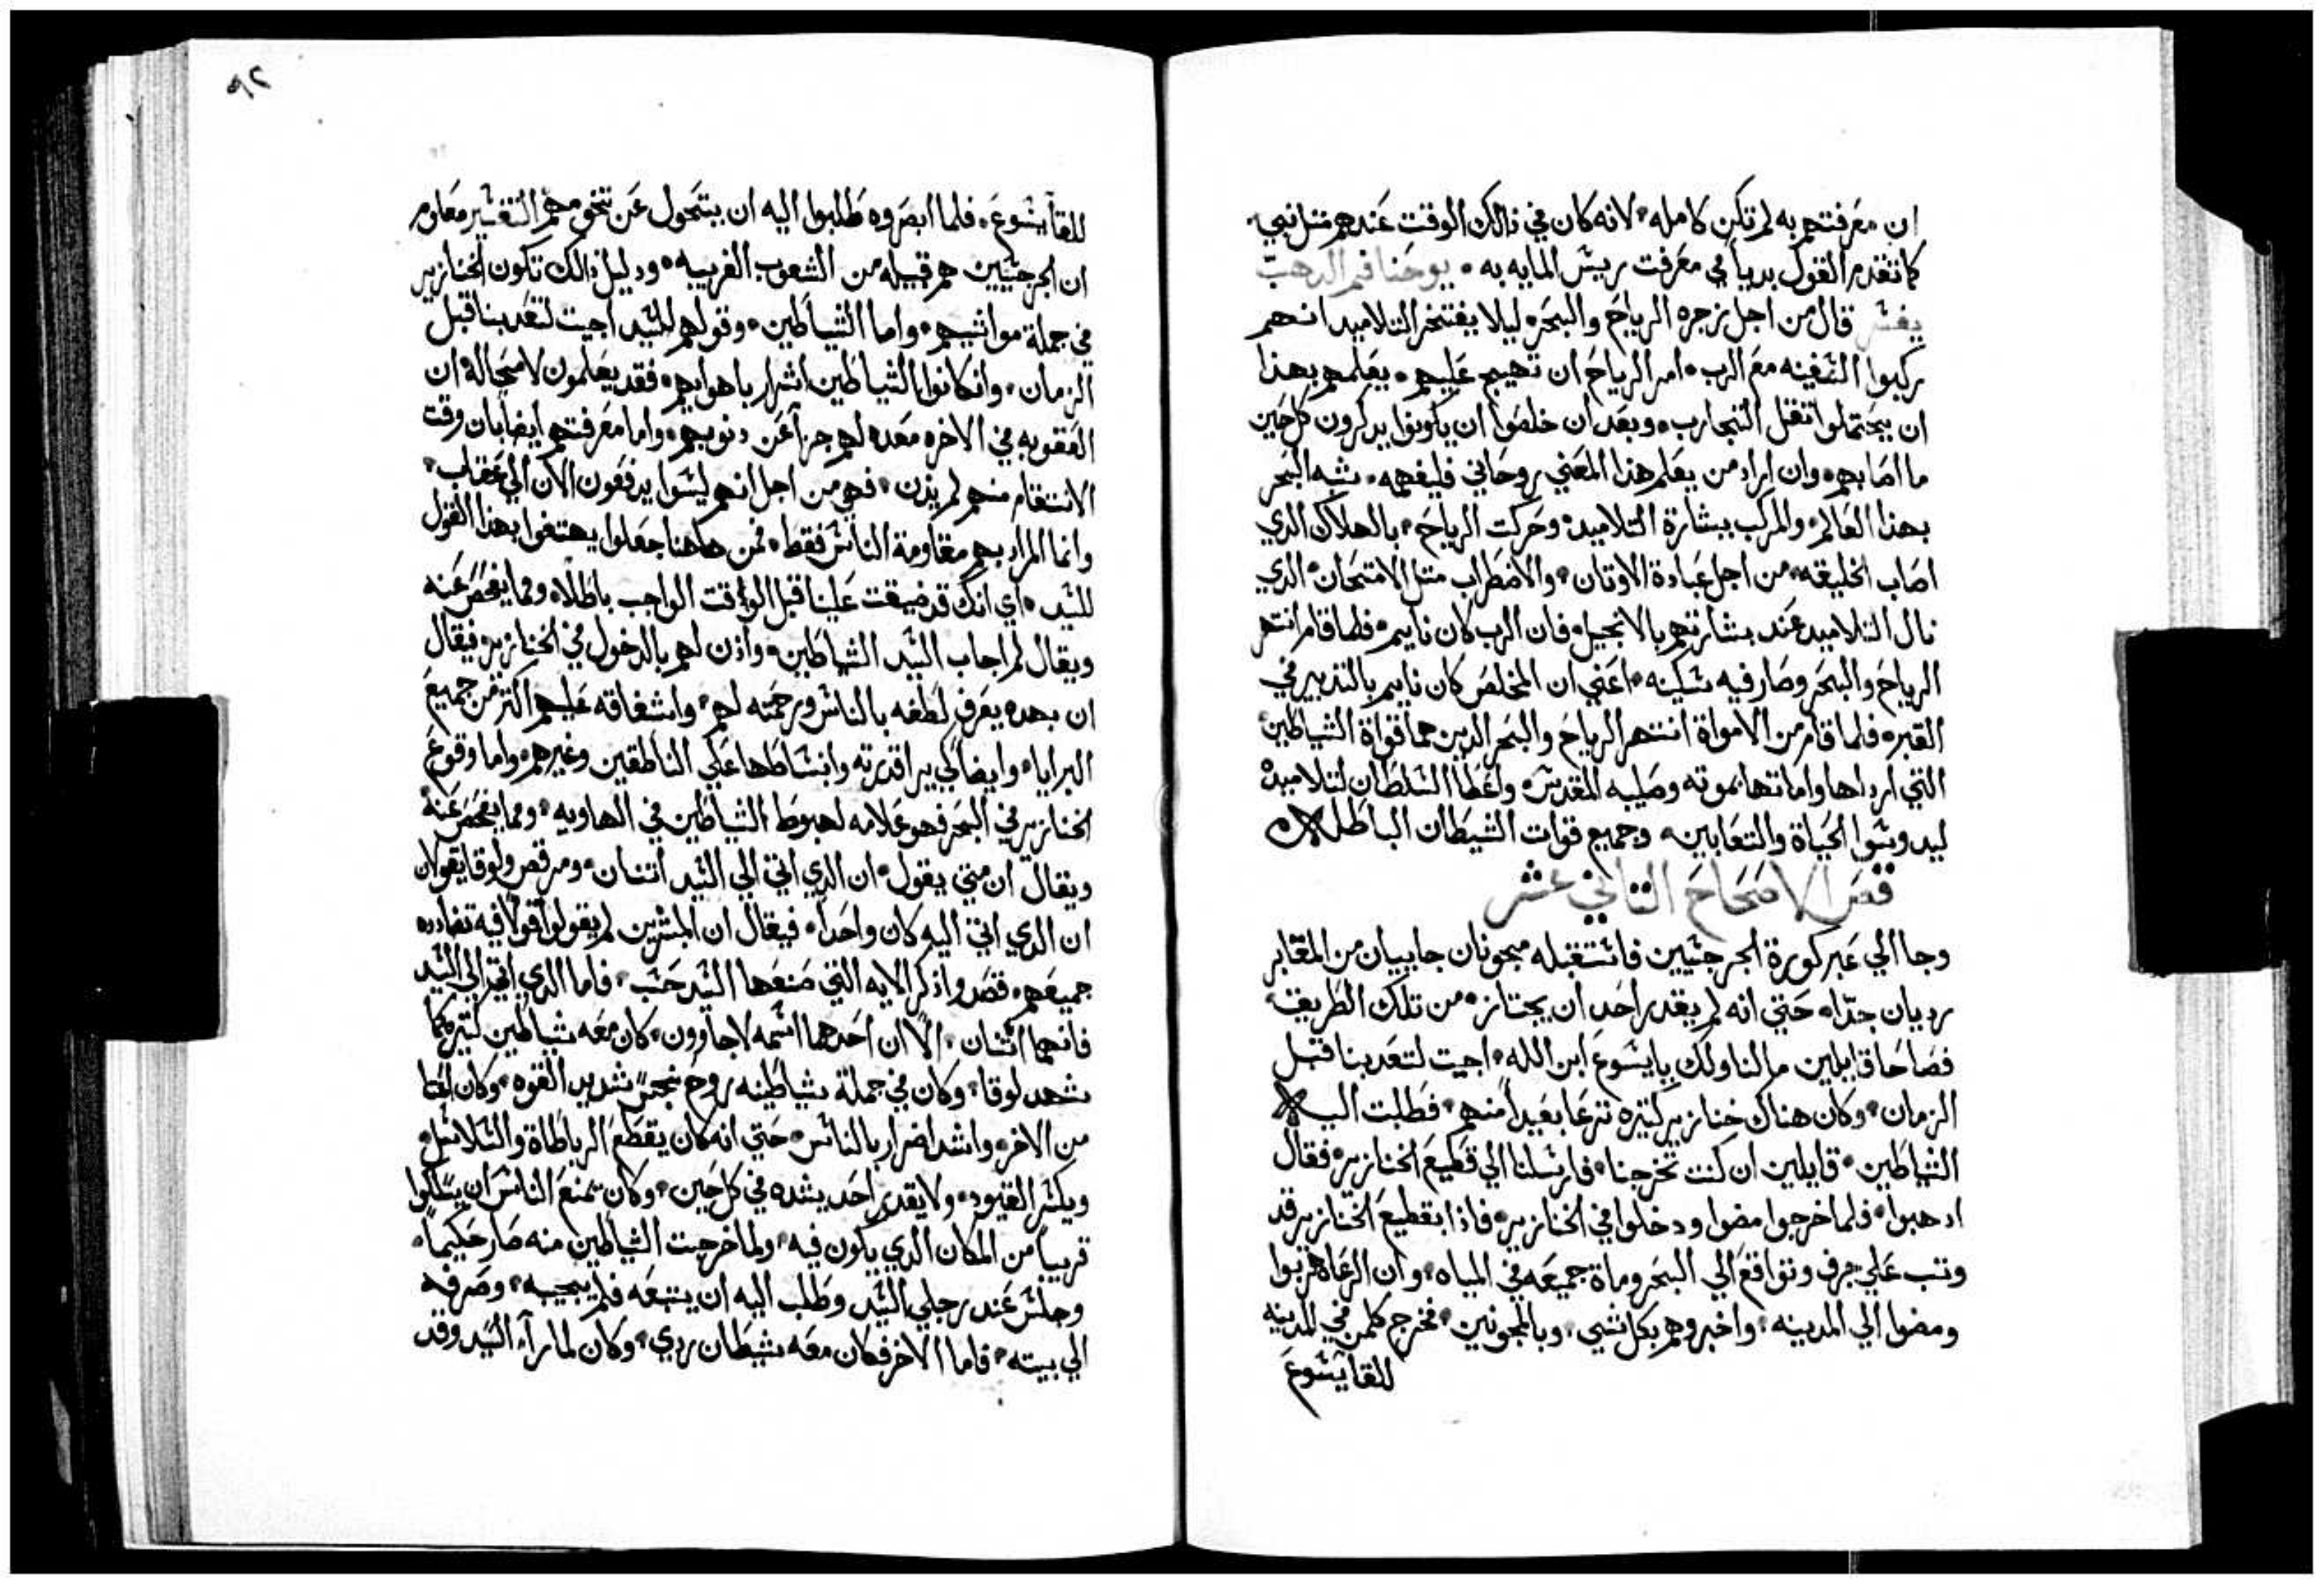 ان معرفتهم به لم تكن كامله، لانه كان في ذالك الوقت عندهم متل نبي،
كما تقدم القول بدياً في معرفت رييس المايه به، يوحنا فم الدهب
يفسر قال من اجل زجره الرياح والبحر، ليلا يفتخر التلاميد انهم
ركبوا السفينه مع الرب، امر الرياح ان تهيج عليهم، يعلمهم بهدا
ان يحتملوا تقل التجارب، وبعد ان خلصوا ان يكونوا يدكرون كل حين
ما اصابهم، وان اراد من يعلم هذا المعني روحاني فليفهمه، شبه البحر
بهدا العالم، والمركب ببشارة التلاميد، وحركت الرياح، بالهلاك الدي
اصاب الخليقه، من اجل عبادة الاوتان، والاضطراب متل الامتحان، الدي
نال التلاميد عند بشارتهم بالانجيل، فان الرب كان نايم، فلما قام انتهر
الرياح والبحر وصار فيه سكينه، اعني ان المخلص كان نايم بالتدبير في
القبر، فلما قام من الامواة انتهر الرياح والبحر الدين هما قواة الشياطين
التي ارداها واماتها بموته وصليبه المقدس، واعطا السلطان لتلاميده
ليدوسوا الحياة والتعابين، وجميع قوات الشيطان الباطله
فص الاصحاح التاني عشر
وجا الي عبر كورة الجرجسيين فاستقبله مجنونان جاييان من المقابر
رديان جدًا، حتي انه لم يقدر احد ان يجتاز، من تلك الطريق،
فصاحا قايلين ما لنا ولك يا يسوع ابن الله، اجيت لتعدبنا قبل
الزمان، وكان هناك خنازير كتيره ترعا بعيداً منهم، فطلبت اليه
الشياطين، قايلين ان كنت تخرجنا، فارسلنا الي قطيع الخنازير، فقال
ادهبوا، فلما خرجوا مضوا ودخلوا في الخنازير، فاذا بقطيع الخنازير قد
وتب علي جرف وتواقع الي البحر وماة جميعه في المياه، وان الرعاة هربوا
ومضوا الي المدينه، واخبروهم بكل شي، وبالمجنونين، فخرج كلمن في المدينه
للقا يسوع
٩٢
للقا يسوع، فلما ابصروه طلبوا اليه ان يتحول عن تخومهم التفسير معلوم
ان الجرجسيين هم قبيله من الشعوب الغريبه، ودليل ذالك تكون الخنازير
في جملة مواشيهم، واما الشياطين، وقولهم للسيد اجيت لتعدبنا قبل
الزمان، وان كانوا الشياطين اشرار باهوايهم، فقد يعلمون لا محالة ان
العقوبه في الاخره معده لهم جزآ عن دنوبهم، واما معرفتهم ايضاً بان وقت
الانتقام منهم لم يدن، فهي من اجل انهم ليسوا يدفعون الان الي عقاب،
وانما المراد بهم مقاومة الناس فقط، فمن هاهنا جعلوا يهتفوا بهدا القول
للسيد، اي انك قد ضيقت علينا قبل الوقت الواجب باطلًا، ومما يفحص عنه
ويقال لم اجاب السيد الشياطين، واذن لهم بالدخول في الخنازير، فيقال
ان بهده يعرف لطفه بالناس ورحمته لهم، واشفاقه عليهم اكتر من جميع
البرايا، وايضاً لكي يرا قدرته وانبساطها علي الناطقين وغيرهم، واما وقوع
الخنازير في البحر فهو علامه لهبوط الشياطين في الهاويه، ومما يفحص عنه
ويقال ان متي يقول، ان الدي اتي الي السيد اتنان، ومرقص ولوقا يقولان
ان الدي اتي اليه كان واحداً، فيقال ان المبشرين لم يقولوا قولًا فيه تضادده
جميعهم، قصدوا ذكر الايه التي صنعها السيد حسب، فاما الدي اتي الي السيد
فانهما اتنان، الّا ان احدهما اسمه لاجاوون، كان معه شياطين كتيره كما
شهد لوقا، وكان في جملة شياطينه روح نجس شديد القوه، وكان
من الاخر، واشد اضرار بالناس، حتي انه كان يقطع الرباطاة والسلاسل،
ويكسر القيود، ولا يقدر احد يشده في كل حين، وكان يمنع الناس ان يسلكوا
قريباً من المكان الدي يكون فيه، ولما خرجت الشياطين منه صار حكيماً،
وجلس عند رجلي السيد وطلب اليه ان يتبعه فلم يجيبه، وصرفه
الي بيته، فاما الاخر فكان معه شيطان ردي، وكان لما رآه السيد وقد